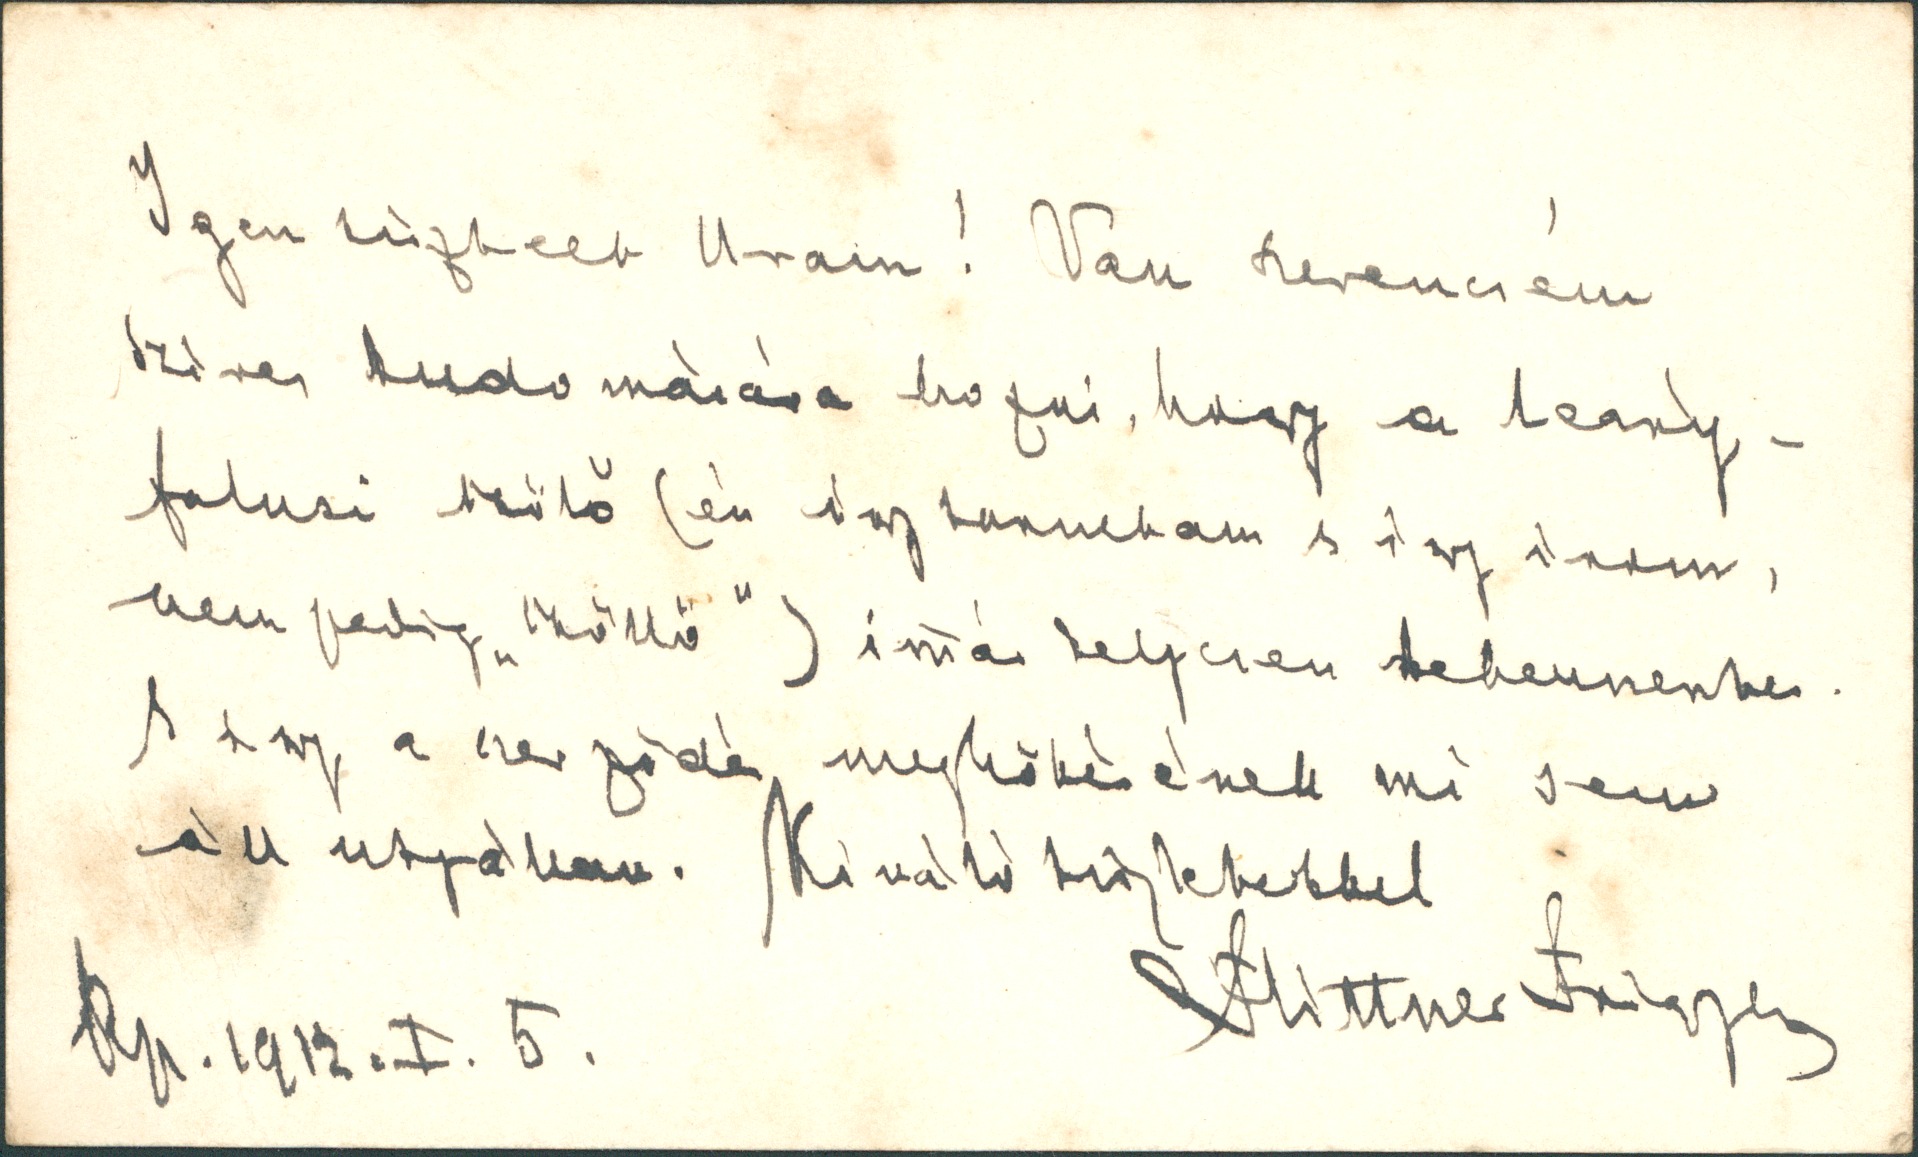 Igen tisztelt Uram! Van szerencsém
szives tudomására hozni, hogy a leány-
falusi szőlő (én így tanultam s így irom,
nem pedig „szőllő") immár teljesen tehermentes.
S így a szerződés megkötésének mi sem
áll utjában. Kiváló tisztelettel
Flittner Frigyes
Bp. 1912. I. 5.